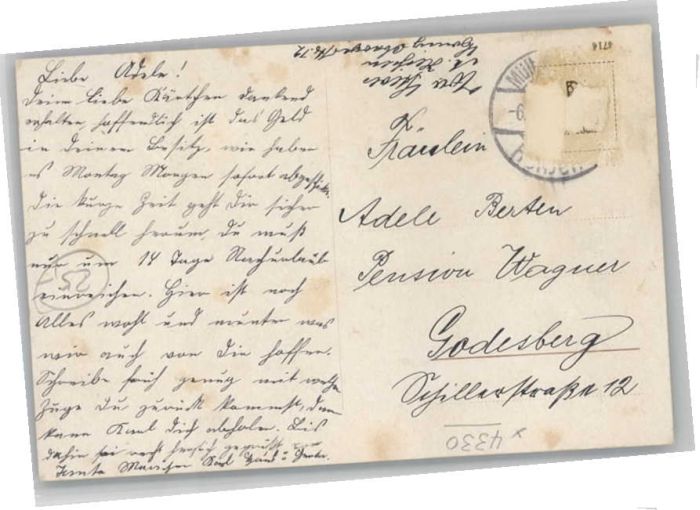 Liebe Adele!
Deine liebe Kärtchen dankend
erhalten, hoffendlich ist das Geld
in deinem Besitz, wir haben
es Montag Morgen sofort abgeschickt.
Die kurze Zeit geht dir sicher
zu schnell herum, du mußt
nur um 14 Tage Nachurlaub
einreichen. Hier ist noch
Alles wohl und munter was
wir auch von Dir hoffen.
Schreibe früh genug mit welche
Zuge du zurück kommst, dan
kann Karl dich abholen. Bis
dahin sei recht herzlich gegrüßt von
Tante
Fräulein
Adele Berten
Pension Wagner
Godesberg
Schillerstraße 12
4330
8718